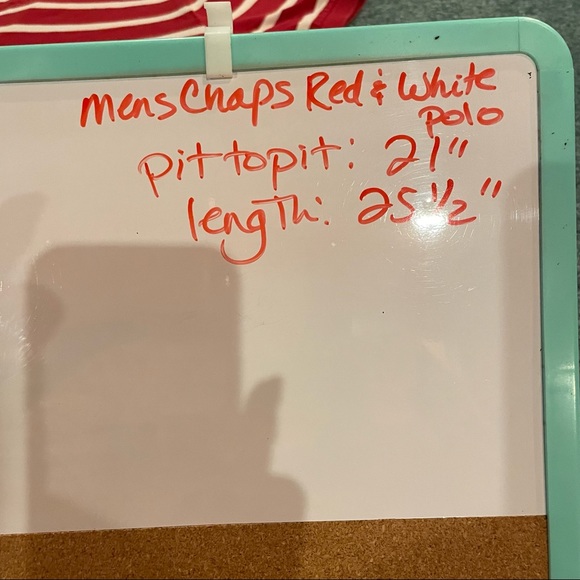 Mens Chaps Red & White
Polo
pit to pit: 21"
length: 25 1/2"